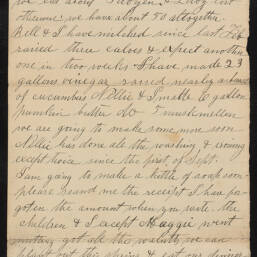 we have about 50 altogether.
Bell & I have milched since last Feb
raised three calves & expect another
one in two weeks & I have made 23
gallons vinegar raised nearly
of cucumbers Nellie & I made 6 gallon
pumpkin butter
we are going to make some more soon
Nellie has done all the washing & ironing
except twice since the first of Sept.
I am going to make a kettle of soap soon
please send me the receipt I have for
goten the amount when you write. the
children & I except Maggie went
got all the walnuts we can
this spring & eat our dinner